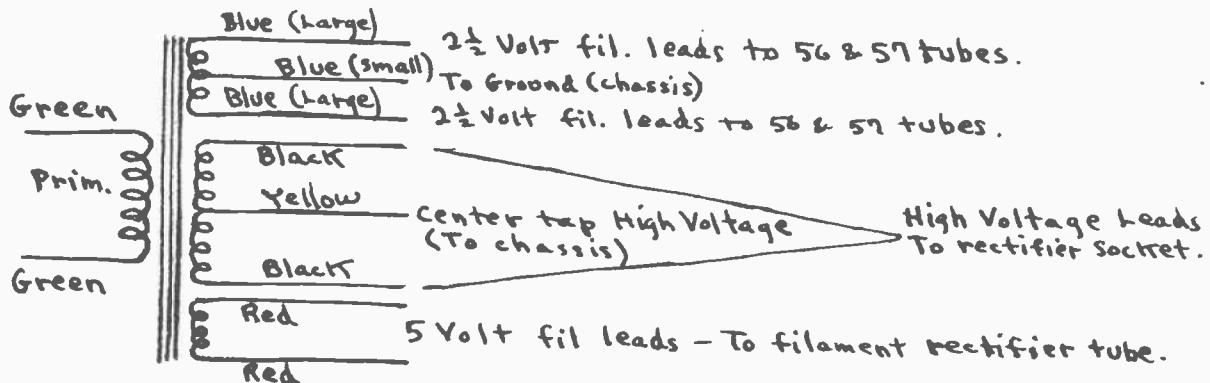 Blue (Large)
2½ Volt fil. leads to 56 & 57 tubes.
Blue (small)
To Ground (chassis)
Blue (Large)
2½ Volt fil. leads to 56 & 57 tubes.
Green
Prim.
Green
Black
Yellow
Center tap High Voltage
(To chassis)
Black
High Voltage Leads
To rectifier socket.
Red
5 Volt fil leads - To filament rectifier tube.
Red